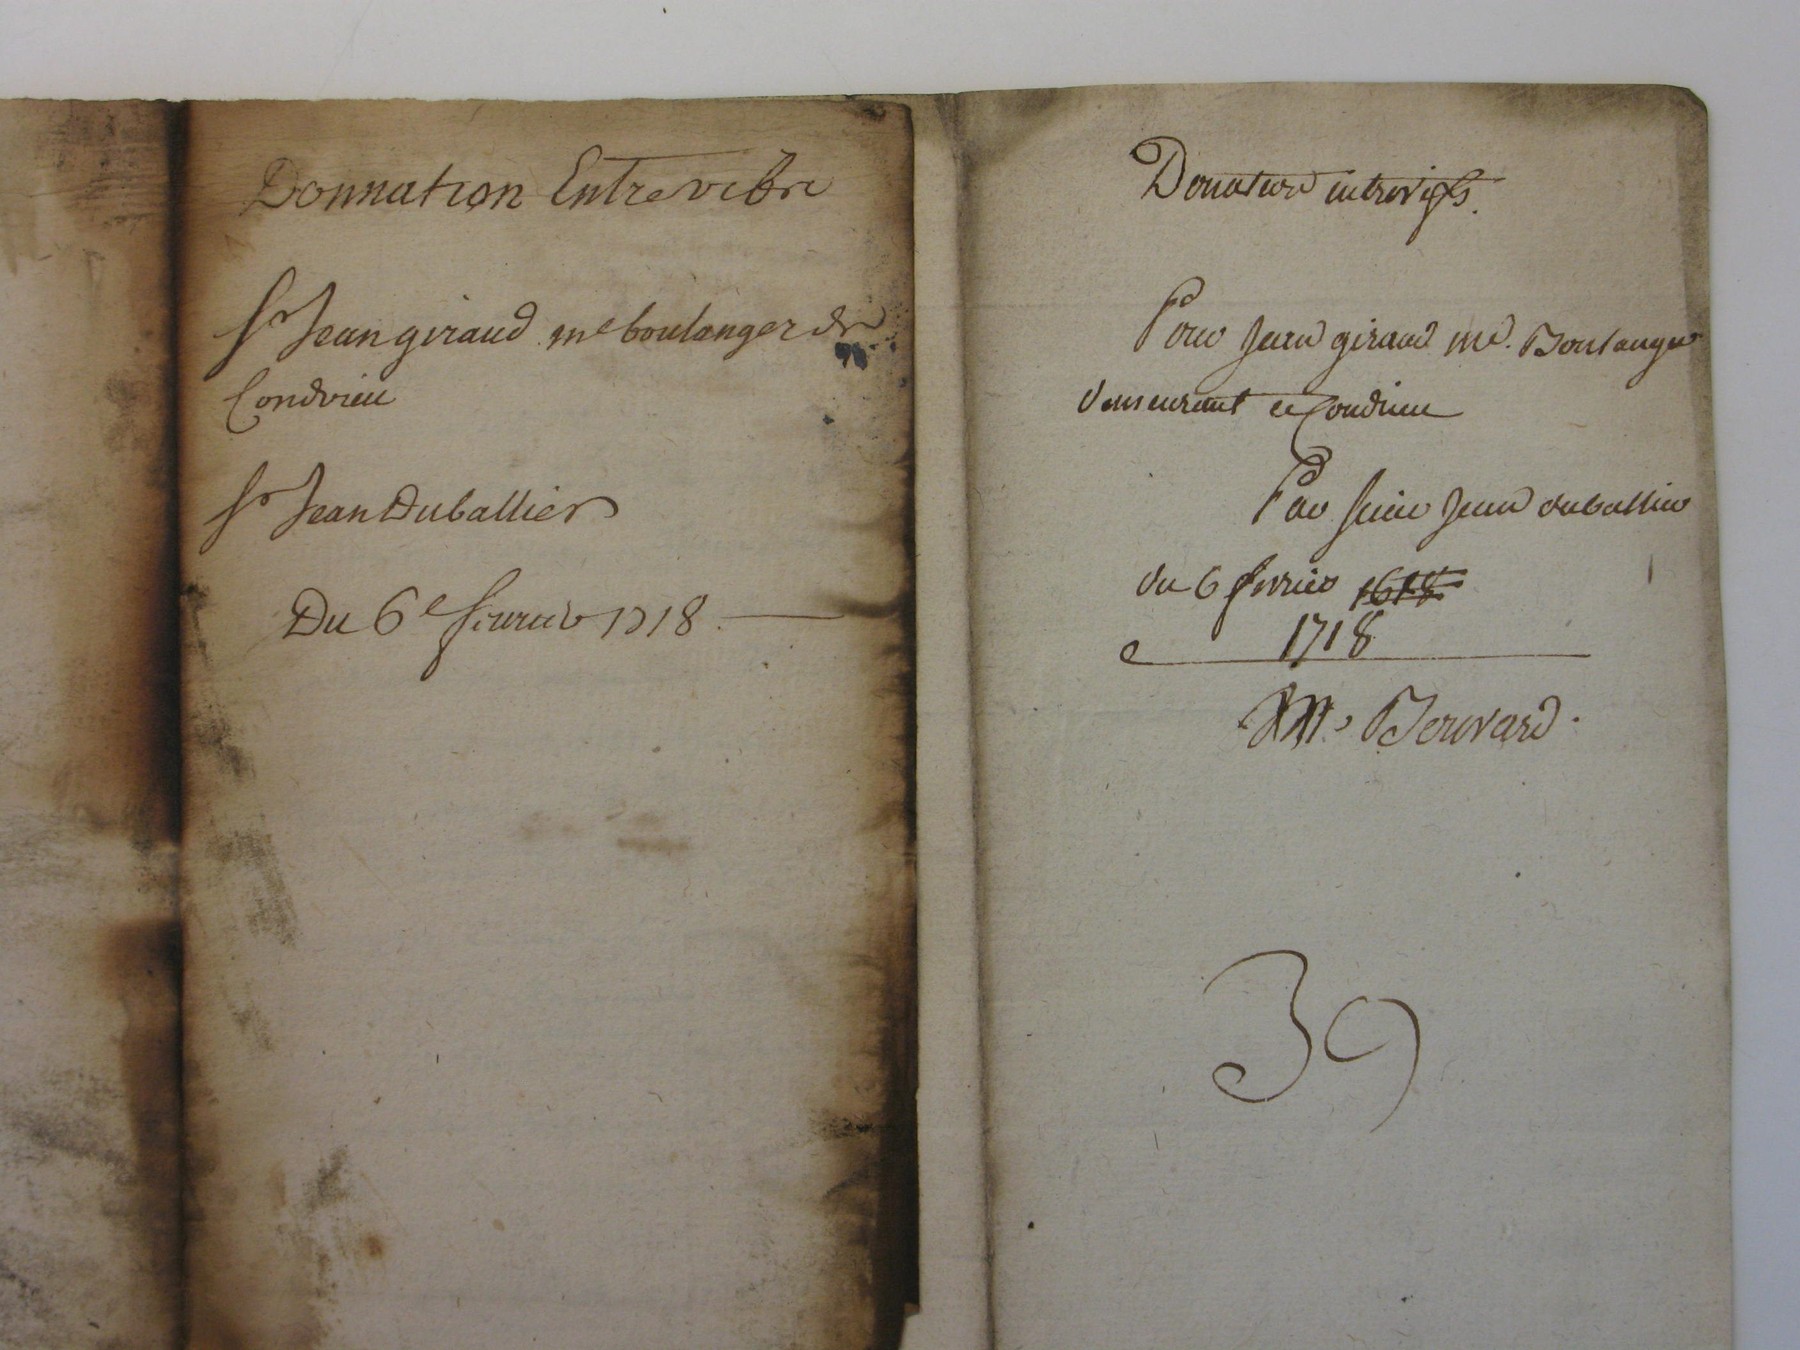 Donnation Entre vifvz
Sr Jean giraud me boulanger de
Condrieu
Sr Jean Duballier
Du 6e feurier 1718
Donation entrevifs.
Pour Jean giraud me. Boulanger
demeurant a Condrieu
Par sieur Jean duballier
du 6 fevrier 1618
1718
Me Berovard.
39